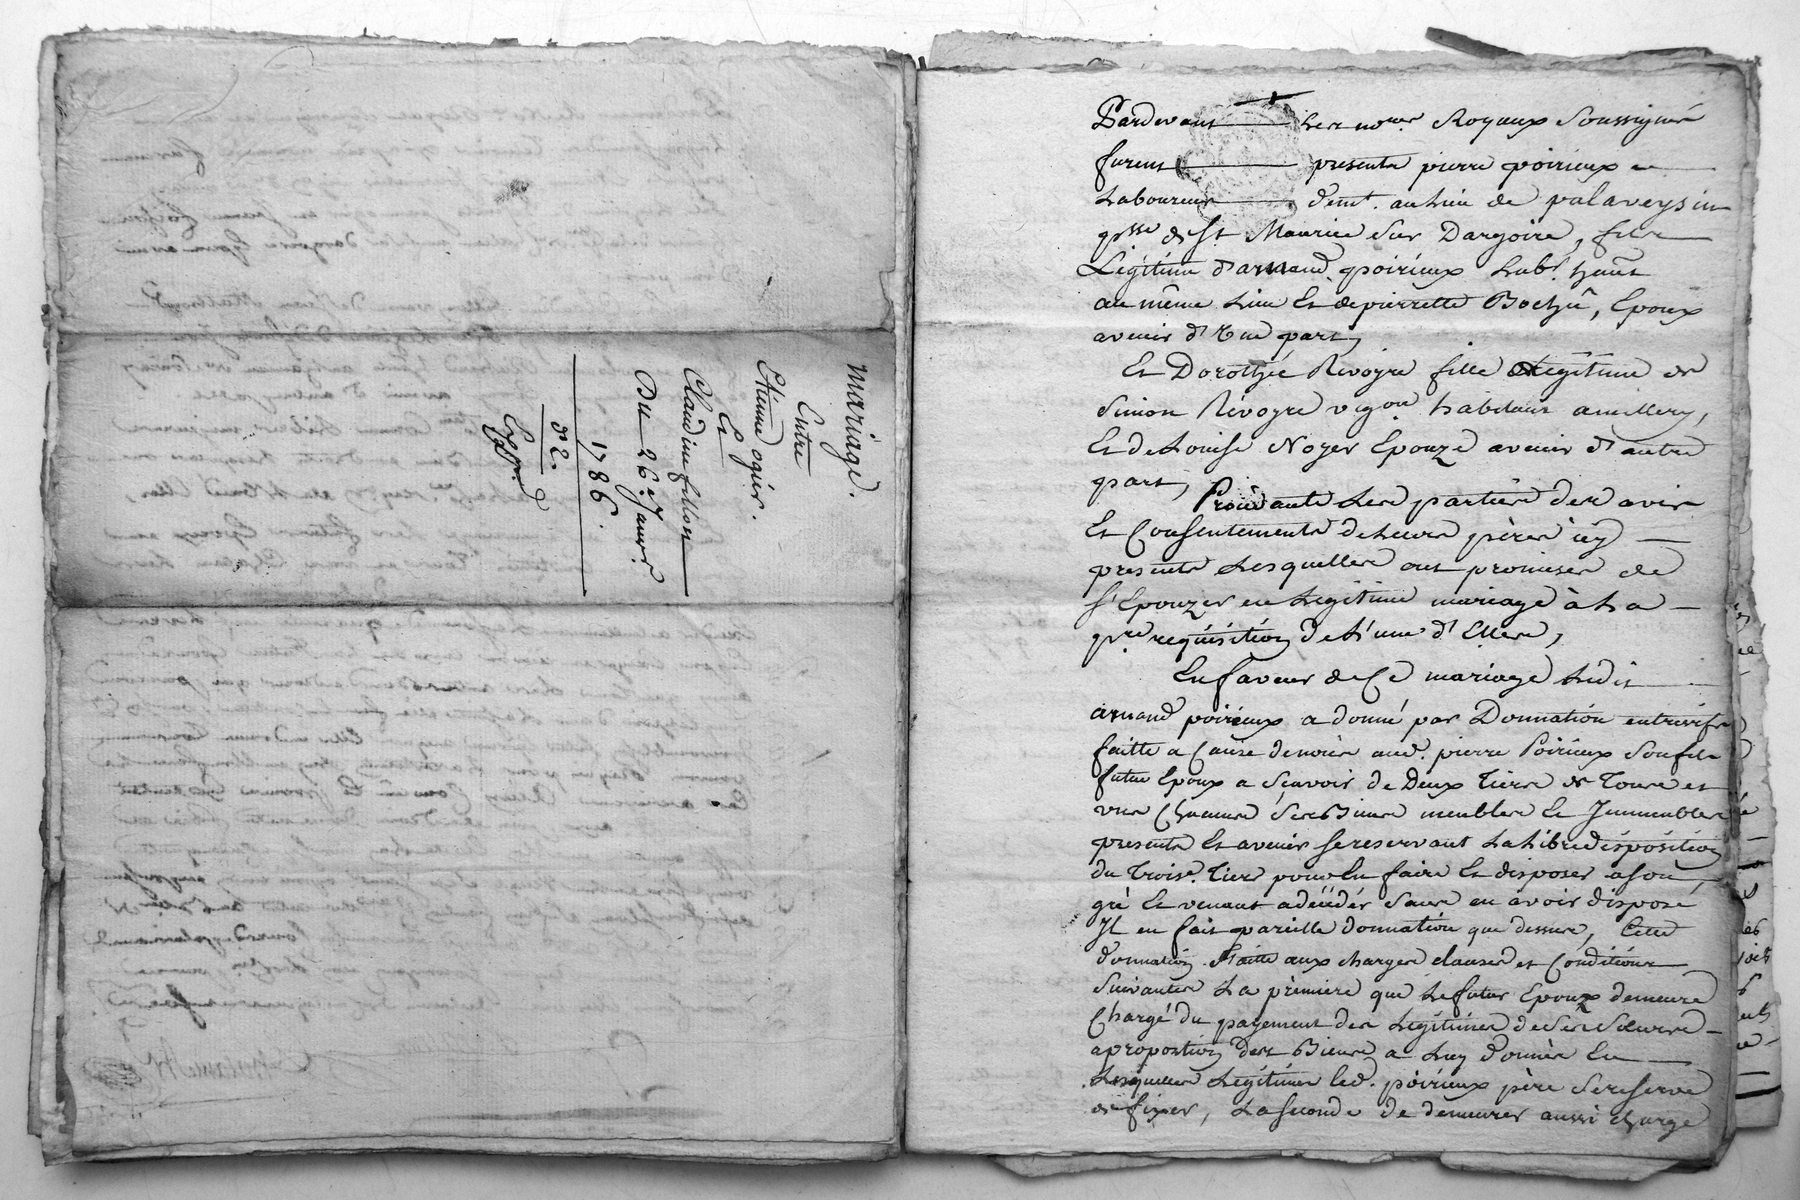 mariage.
Entre
Etienne ogier.
Et
Claudine fillon
Du 26e. Janvr.
1786.
82.
Expd
Pardevant les nores Royaux Soussignés
furent presents pierre poirieux
Laboureur demt. au lieu de palaveysin
psse de St Maurice Sur Dargoire, fils
Légitime d'armand poirieux Labr. hant
au même Lieu Et de pierrette Bochu, Epoux
avenir d'Une part,
Et Dorothée Rivoyre fille Légitime de
Simon Rivoyre vigon habitant a millery,
Et de Louise Noyer Epouze avenir d'autre
part,
Procédants Les parties des avis
Et Consentements de Leurs pères icy
presents Lesquelles ont promises de
s'Epouzer en Legitime mariage à La
pre requisition de L'une d'Elles,
En faveur de Ce mariage Ledit
armand poirieux a donné par Donnation entrevifs
faitte a Cause de noces aud. pierre Poirieux Son fils
futur Epoux a Scavoir de Deux tiers de Tous et
uns Chacuns Ses Biens meubles Et Immeubles
presents Et avenir se reservant La Libre disposition
du Trois. tiers pour En faire Et disposer a son
gré Et venant a déceder Sans en avoir disposé
Il en fait pareille donnation que dessus, Cette
donnation faitte aux charges clauses et Conditions
Suivantes La première que Le futur Epoux demeure
Chargé du payement des Légitimes de Ses Soeurs
a proportion des Biens a Luy donnés
Lesquelles Légitimes led. poirieux père Se reserve
de fixer, La Seconde de demeurer aussi chargé